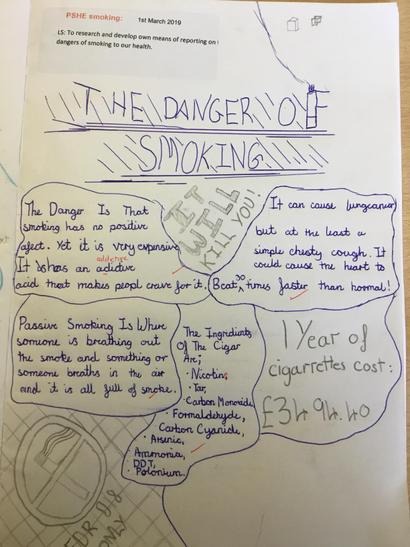 PSHE smoking: 1st March 2019
LS: To research and develop own means of reporting on
dangers of smoking to our health.
THE DANGER OF
SMOKING
IT
WILL
KILL YOU!
The Danger Is That
smoking has no positive
afect. Yet it is very expensive
addictive
It has an adictive
acid that makes peopl crave for it.
It can cause lungcancer
but at the least a
simple chesty cough. It
could cause the heart to
30
Beat times faster than normal!
Passive Smoking Is Where
someone is breathing out
the smoke and something or
someone breaths in the air
and it is all full of smoke.
The Ingridients
Of The Cigar
Are;
• Nicotin,
• Tar,
• Carbon Monoxide
• Formaldehyde,
Carbon Cyanide,
• Arsenic,
Ammonia,
DDT,
• Polonium.
1 Year of
cigarrettes cost:
£3494.40
ONLY